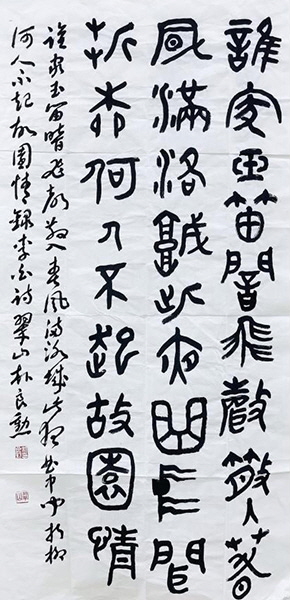 誰家玉笛闇飛聲散入春
風滿洛城此夜曲中聞
折柳何人不起故園情
誰家玉笛暗飛聲散入春風滿洛城此夜曲中聞折柳
何人不起故園情錄李白詩翠山朴良勳